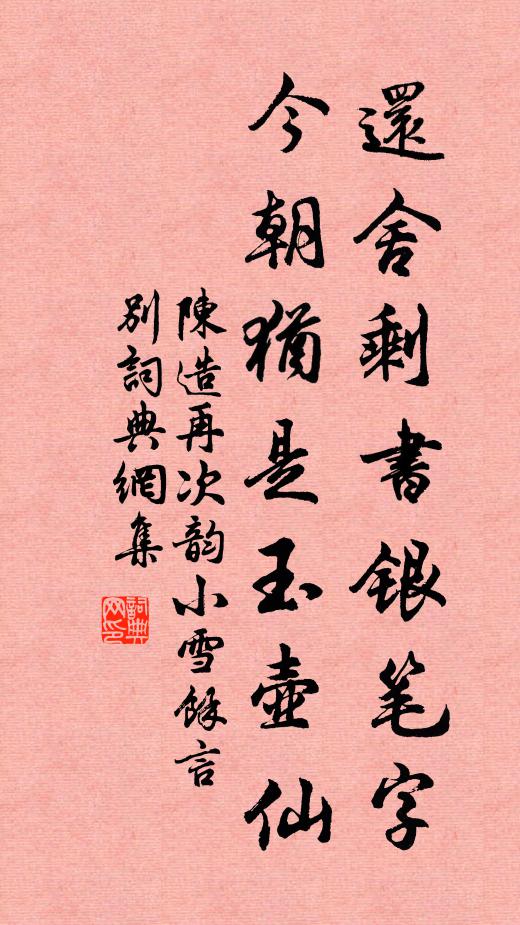 還舍剩書銀笔字
今朝猶是玉壺仙
陳造再次韵小雪餘言
別詞典網集
詞典网印